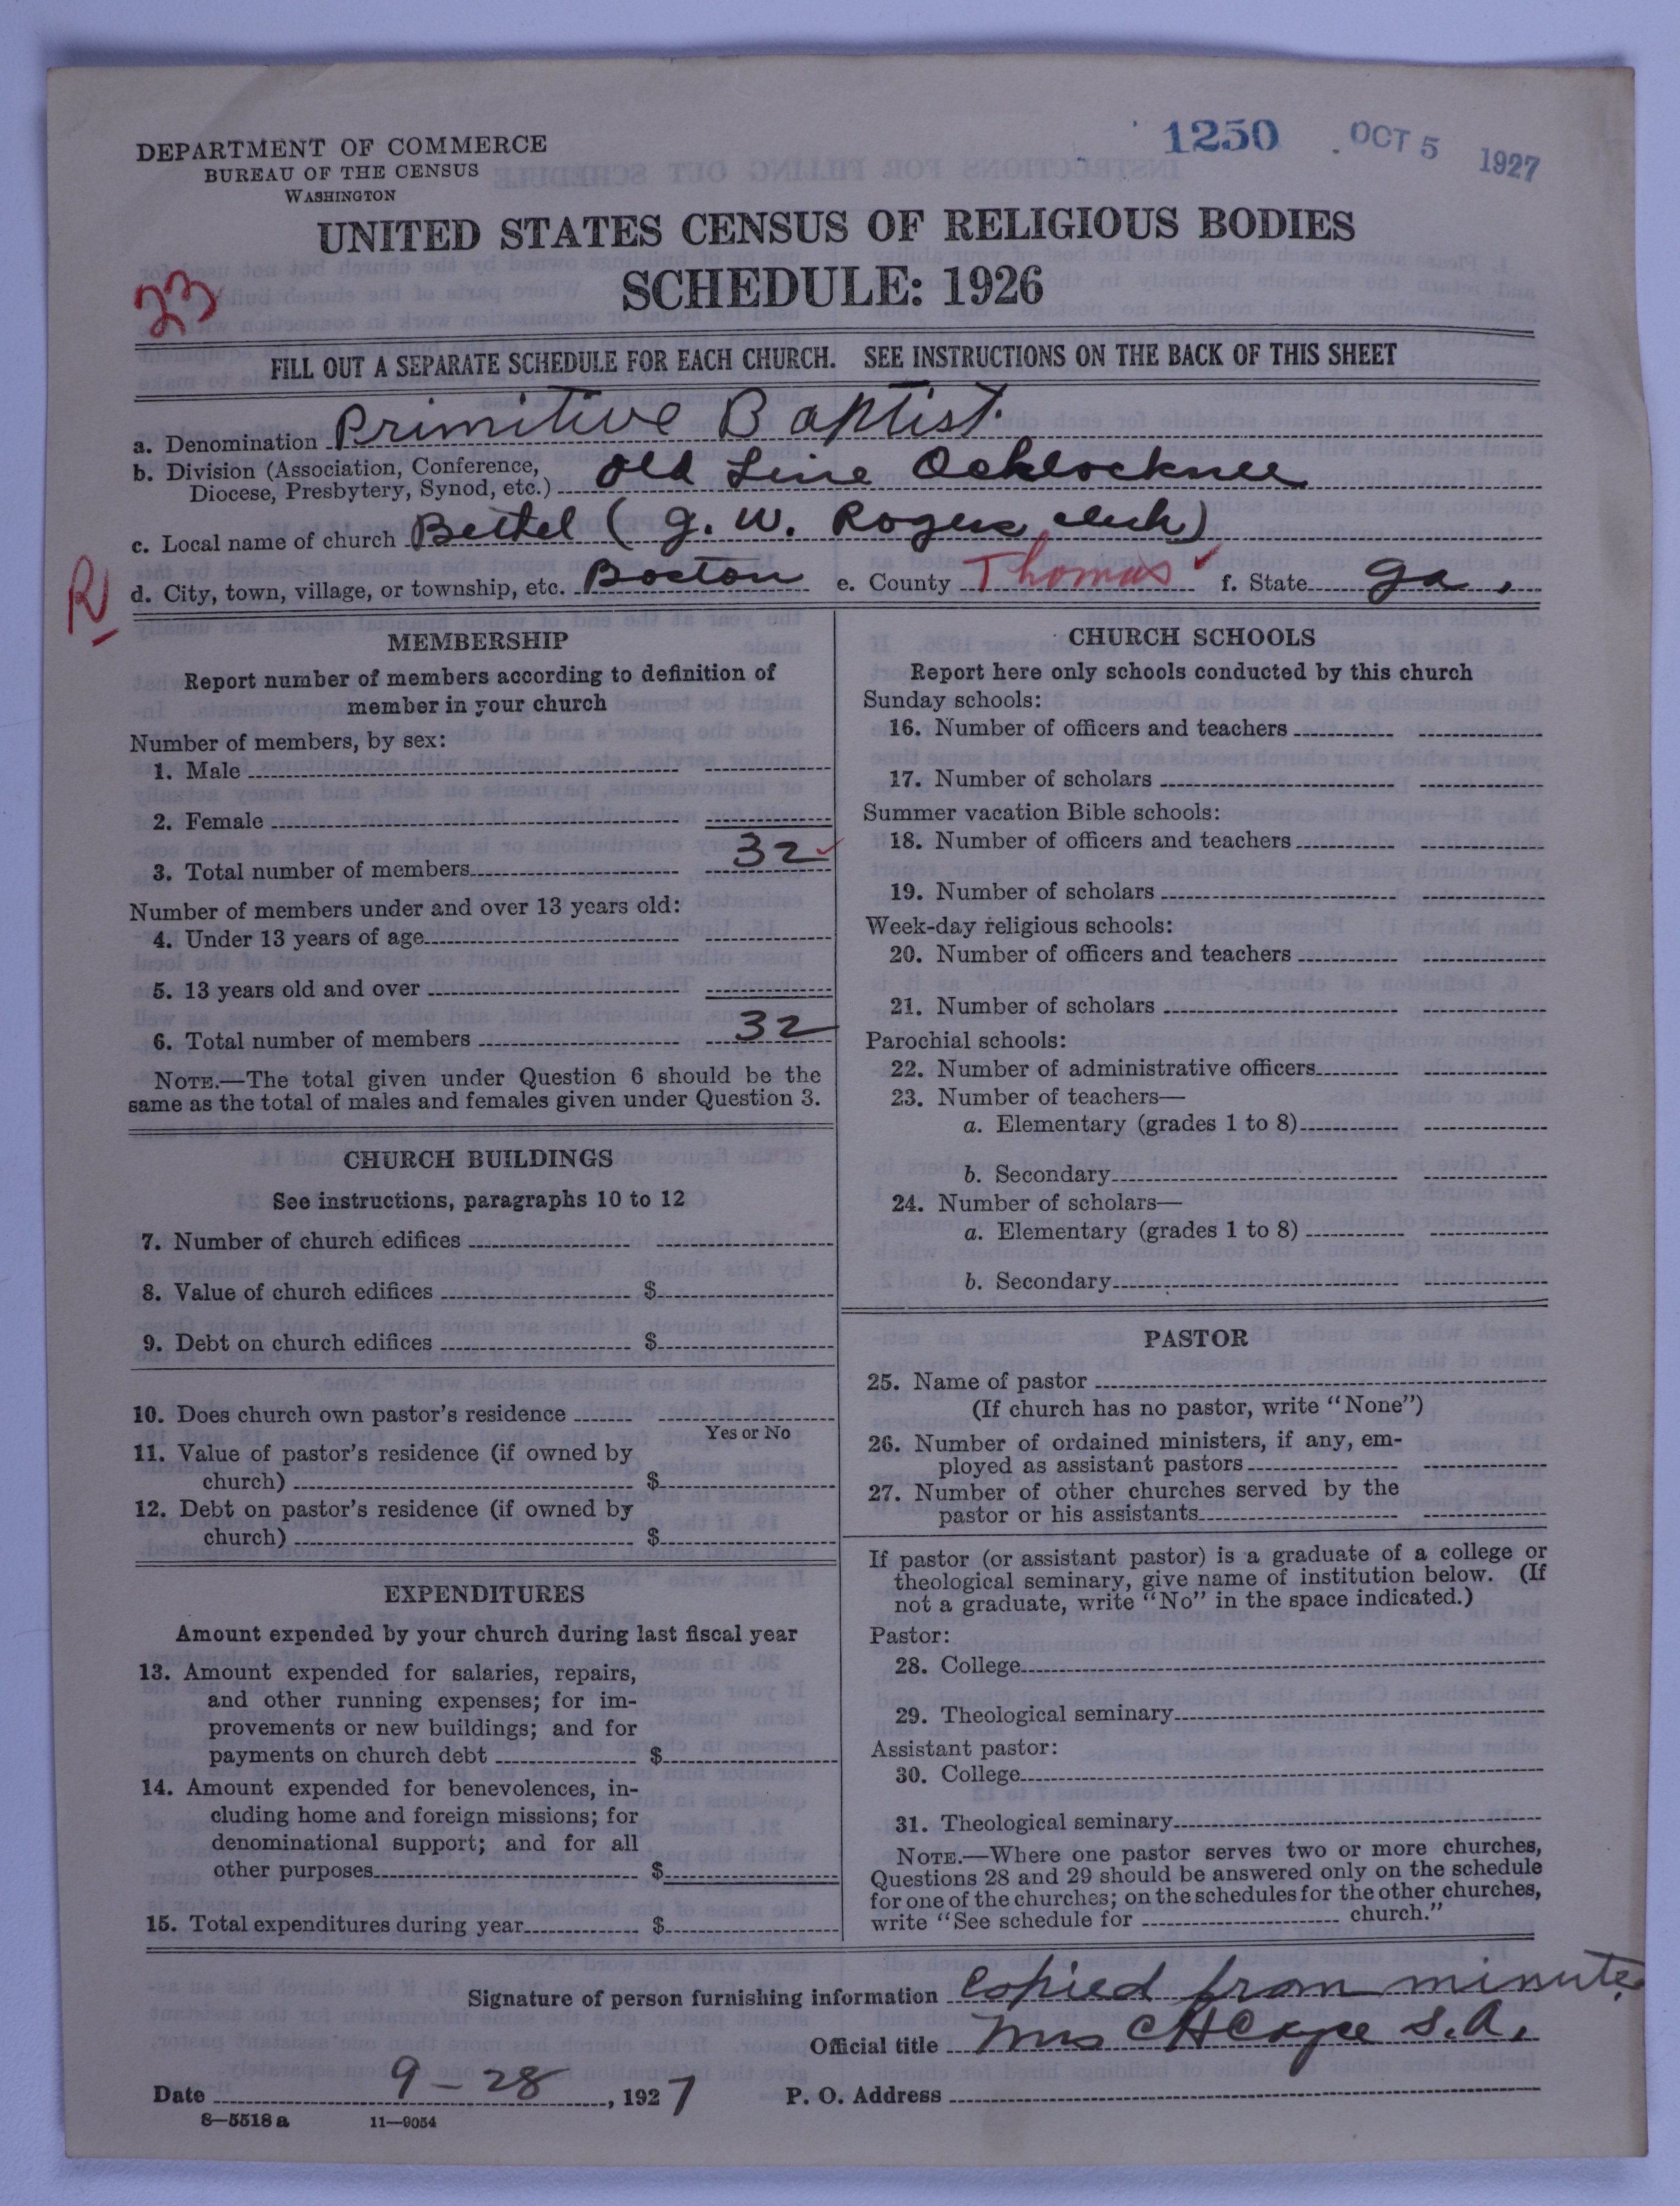 1250 OCT 5 1927
DEPARTMENT OF COMMERCE
BUREAU OF THE CENSUS
WASHINGTON
UNITED STATES CENSUS OF RELIGIOUS BODIES
SCHEDULE: 1926
23
FILL OUT A SEPARATE SCHEDULE FOR EACH CHURCH. SEE INSTRUCTIONS ON THE BACK OF THIS SHEET
a. Denomination Primitive Baptist.
b. Division (Association, Conference, Diocese, Presbytery, Synod, etc.) Old Line Ochlocknee
c. Local name of church Bethel (G. W. Rogers clerk)
R
d. City, town, village, or township, etc. Boston e. County Thomas f. State Ga.
MEMBERSHIP
Report number of members according to definition of
member in your church
Number of members, by sex:
1. Male
2. Female
3. Total number of members 32
Number of members under and over 13 years old:
4. Under 13 years of age
5. 13 years old and over
6. Total number of members 32
NOTE.—The total given under Question 6 should be the
same as the total of males and females given under Question 3.
CHURCH BUILDINGS
See instructions, paragraphs 10 to 12
7. Number of church edifices
8. Value of church edifices $
9. Debt on church edifices $
10. Does church own pastor's residence
Yes or No
11. Value of pastor's residence (if owned by
church) $
12. Debt on pastor's residence (if owned by
church) $
EXPENDITURES
Amount expended by your church during last fiscal year
13. Amount expended for salaries, repairs,
and other running expenses; for im-
provements or new buildings; and for
payments on church debt $
14. Amount expended for benevolences, in-
cluding home and foreign missions; for
denominational support; and for all
other purposes $
15. Total expenditures during year $
CHURCH SCHOOLS
Report here only schools conducted by this church
Sunday schools:
16. Number of officers and teachers
17. Number of scholars
Summer vacation Bible schools:
18. Number of officers and teachers
19. Number of scholars
Week-day religious schools:
20. Number of officers and teachers
21. Number of scholars
Parochial schools:
22. Number of administrative officers
23. Number of teachers—
a. Elementary (grades 1 to 8)
b. Secondary
24. Number of scholars—
a. Elementary (grades 1 to 8)
b. Secondary
PASTOR
25. Name of pastor
(If church has no pastor, write "None")
26. Number of ordained ministers, if any, em-
ployed as assistant pastors
27. Number of other churches served by the
pastor or his assistants
If pastor (or assistant pastor) is a graduate of a college or
theological seminary, give name of institution below. (If
not a graduate, write "No" in the space indicated.)
Pastor:
28. College
29. Theological seminary
Assistant pastor:
30. College
31. Theological seminary
NOTE.—Where one pastor serves two or more churches,
Questions 28 and 29 should be answered only on the schedule
for one of the churches; on the schedules for the other churches,
write "See schedule for church."
Signature of person furnishing information copied from minutes
Official title Mrs C H Cape S.A.
Date 9-28, 1927 P. O. Address
8—5518 a 11—9054